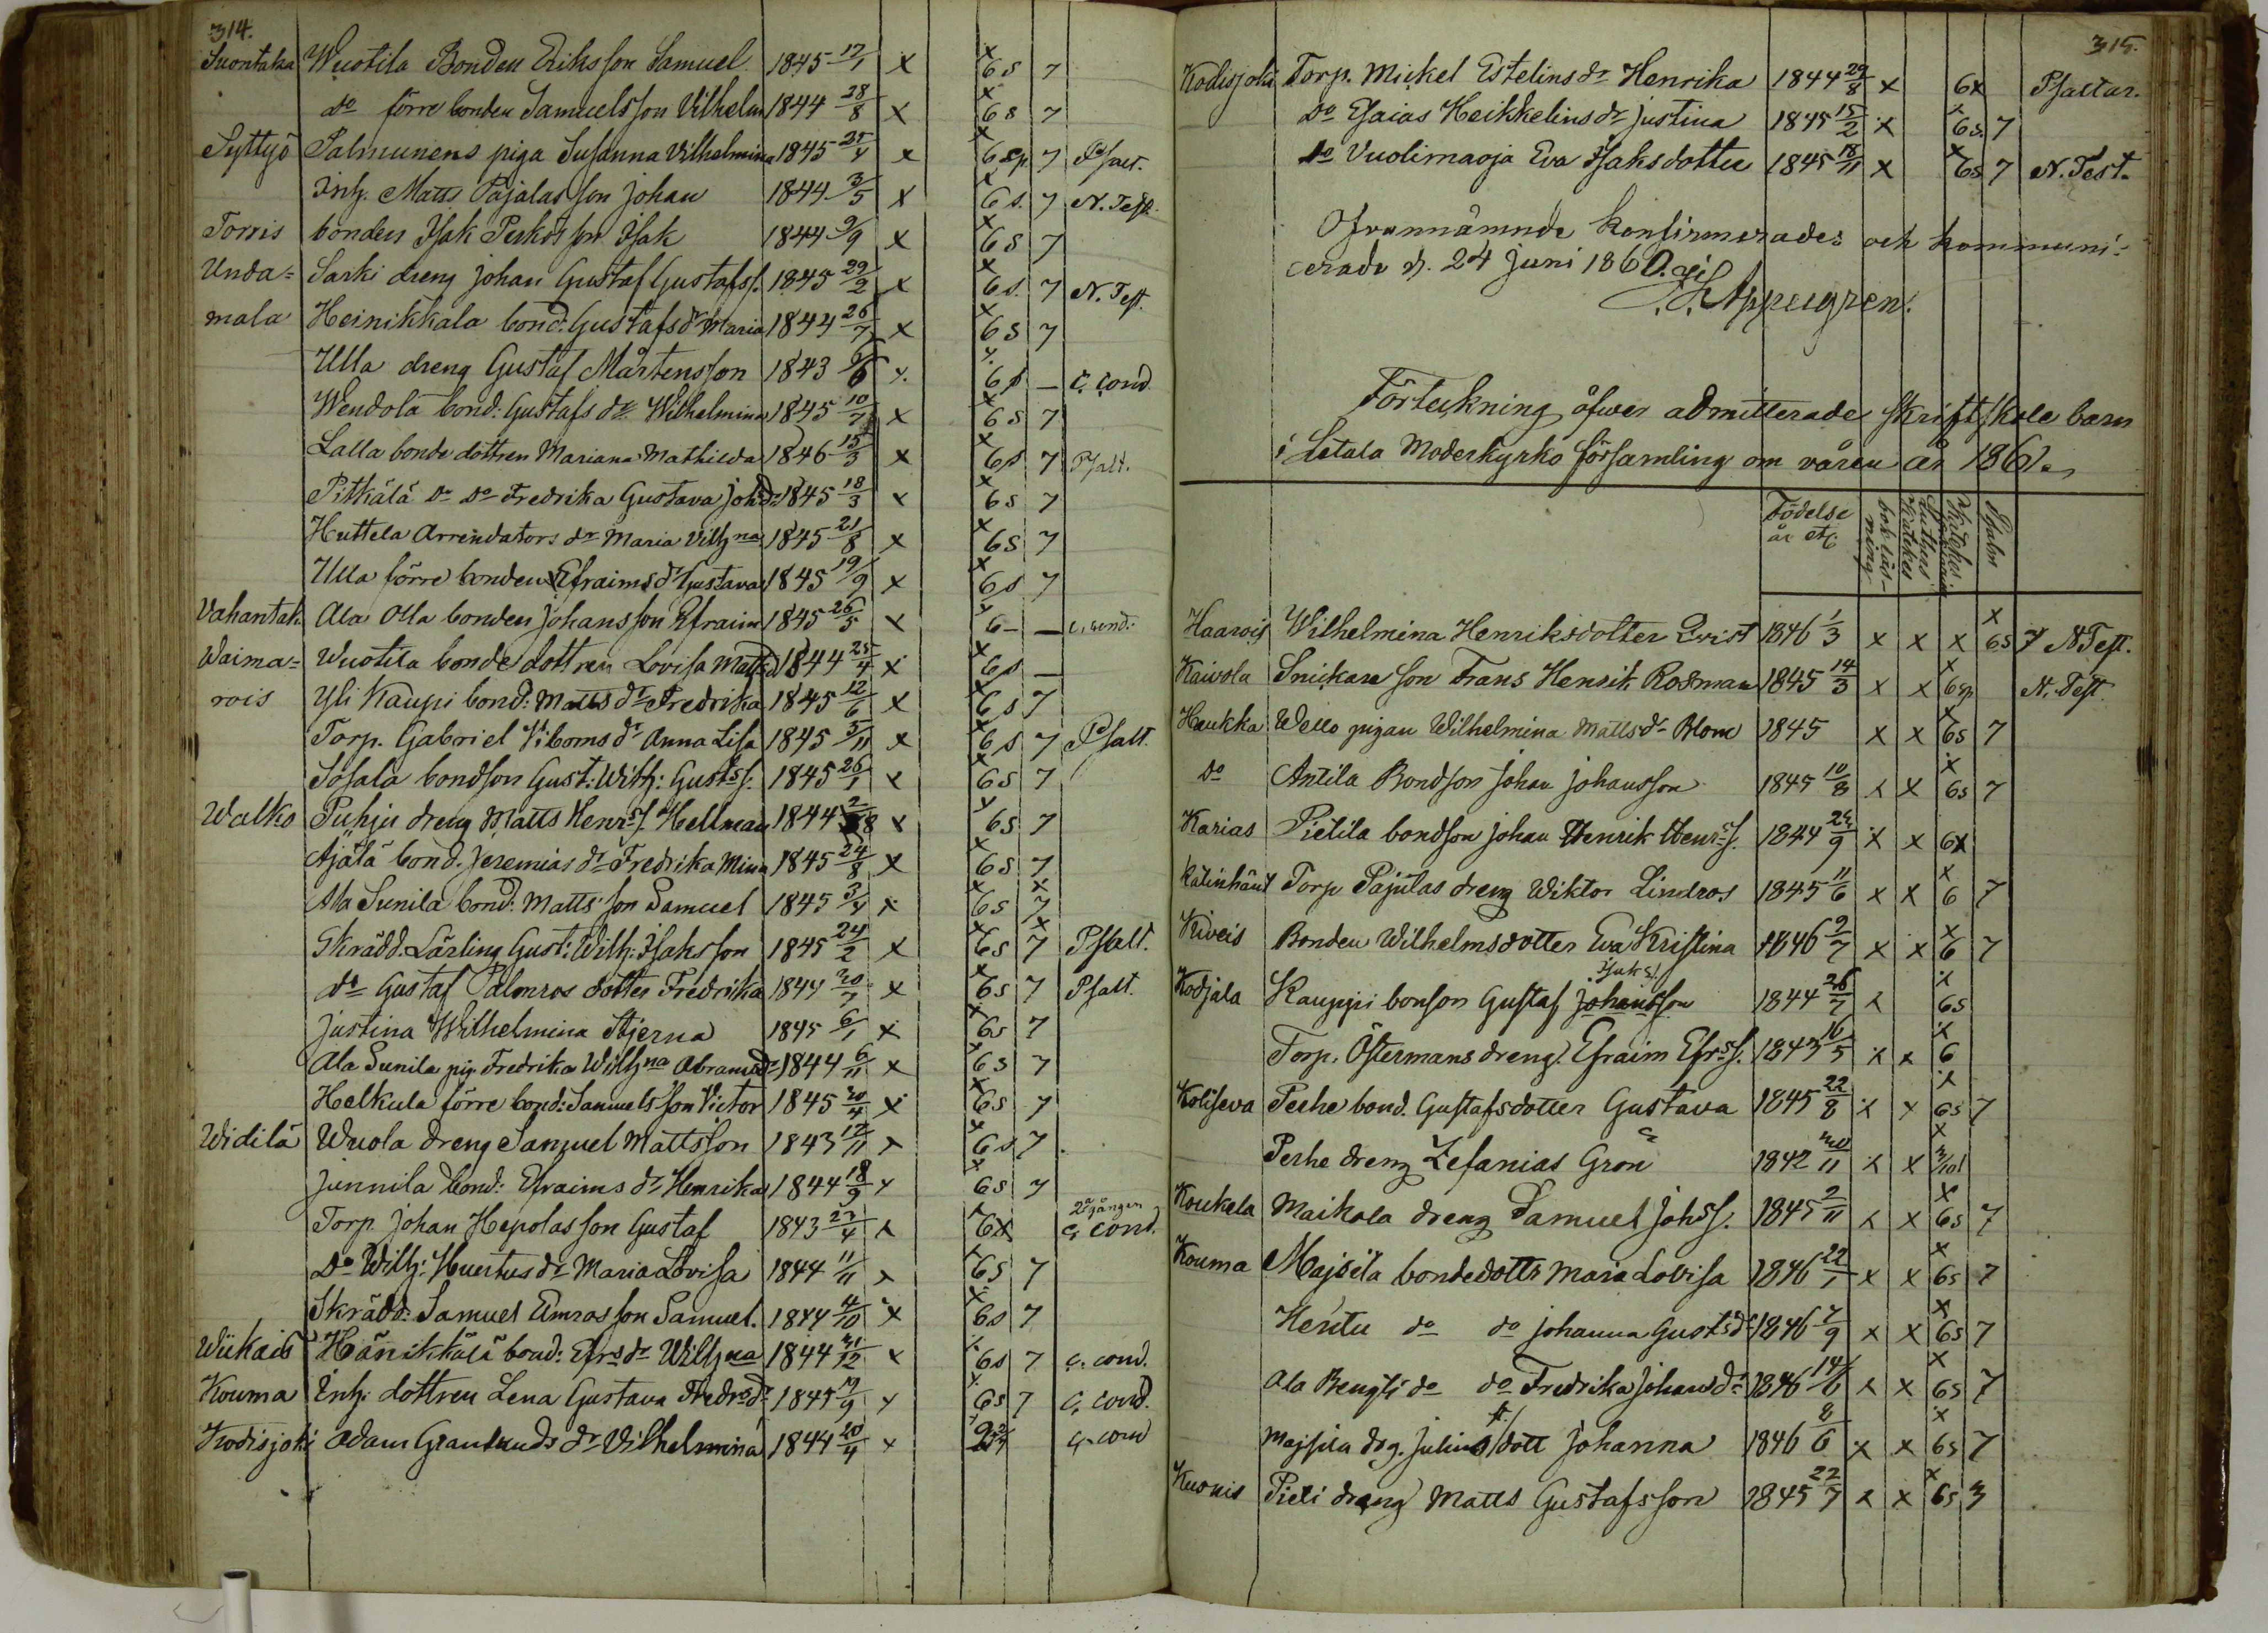 314.
Suontaka Wuotila Bonden Eriksson Samuel 1845 17/1 x x 6s 7
do förre bonden Samuelsson Vilhelm 1844 28/8 x x 6s 7
Syttyö Salmunens piga Susanna Vilhelmina 1845 25/4 x x 6sp 7 Psalt.
Inh. Matts Pajalas son Johan 1844 3/5 x x 6s. 7 N. Test.
Torris bonden Isak Perkös son Isak 1844 9/9 x x 6s 7
Unda= Sarki dreng Johan Gustaf Gustafss. 1845 29/2 x x 6s. 7 N. Test.
mala Heinikkala bond: Gustafs dr Maria 1844 26/7 x x 6s 7
Ulla dreng Gustaf Mårtensson 1843 6/6 x. x. 6s — c. cond.
Wendola bond: Gustafs dr Wilhelmina 1845 10/7 x x 6s 7
Lalla bonde dottren Mariana Mathilda 1846 15/3 x x 6s 7 Psalt.
Pitkälä do do Fredrika Gustava Johdr 1845 18/3 x x 6s 7
Huttela Arrendators dr Maria Vilhna 1845 21/8 x x 6s 7
Ulla förre bonden Efraims dr Gustava 1845 19/9 x x 6s 7
Vahantak. Ala Olla bonden Johansson Efraim 1845 26/5 x x 6– — c. cond.
Waima= Wuotila bonde dottren Lovisa Mattsd 1844 25/4 x x 6s —
rois Yli Kaupi bond: Matts dr Fredrika 1845 12/6 x x 6s 7
Torp. Gabriel Viboms dr Anna Lisa 1845 5/11 x x 6s 7 Psalt.
Sosala bondson Gust: Wilh: Gustss. 1845 26/1 x x 6s 7
Walko Puhju dreng Matts Henrss. Hellman 1844 2/8 x x 6s 7
Äjälä bond. Jeremias dr Fredrika Mina 1845 24/8 x x 6s 7
Ala Sunila bond: Matts son Samuel 1845 3/4 x x 6s x 7
Skrädd. Lärling Gust: Wilh: Isaksson 1845 24/2 x x 6s x 7 Psalt.
do Gustaf Palmros dotter Fredrika 1844 30/7 x x 6s 7 Psalt.
Justina Wilhelmina Stjerna 1845 6/1 x x 6s 7
Ala Sunila pig. Fredrika Wilhna Abramsdr 1844 6/11 x x 6s 7
Helkula förre bond: Samuelsson Victor 1845 30/4 x x 6s 7
Widilä Wuola dreng Samuel Mattsson 1843 12/11 x x 6s 7
Junnila bond: Efraims dr Henrika 1844 18/9 x x 6s 7
Torp. Johan Hepolas son Gustaf 1843 27/4 x x 6x 2a gången c. cond.
Do Wilh: Huertus dr Maria Lovisa 1844 11/11 x x 6s 7
Skrädd: Samuel Elmros son Samuel. 1844 4/10 x x 6s 7
Wiikais Hänikkälä bond: Efrs dr Wilhna 1844 31/12 x x 6s 7 c. cond.
Kouma Inh. dottren Lena Gustava Fredrsdr 1845 17/9 x x 6s 7 c. cond.
Kodisjoki Adam Granlunds dr Vilhelmina 1844 20/4 x c. cond
315.
Kodisjoki Torp. Mickel Estelins dr Henrika 1844 29/8 x 6x Psaltar.
Do Esaias Heikkelins dr Justina 1845 15/2 x x 6s. 7
do Vuolimaoja Eva Isaksdotter 1845 18/11 x x 6s 7 N. Test.
Ofvannämnde konfirmerades och kommuni=
cerade d. 24 Juni 1860.
Appelgren.
Förteckning öfwer admitterade skriftskole barn
i Letala Moderkyrko församling om våren år 1861.
Födelse år etc. bokläs-ning Lutheri Katekes Psalm
Haarois Wilhelmina Henriksdotter Qvist 1846 1/3 x x x x 6s 7 N. Test.
Kaivola Snickare son Frans Henrik Rosman 1845 14/3 x x x 6sp N. Test.
Haukka Wello pigan Wilhelmina Mattsdr Blom 1845 x x x 6s 7
do Antila Bondson Johan Johansson 1845 10/8 x x x 6s 7
Karias Pietilä bondson Johan Henrik Henrss. 1844 24/9 x x 6x
Katinhänt Torp Pajulas dreng Wiktor Lindros 1845 11/6 x x x 6 7
Kiveis Bonden Wilhelmsdotter Eva Kristina 1846 9/7 x x x 6 7
Isaks.
Kodjala Kauppi bonson Gustaf Johansson 1844 26/7 x x 6s
Torp. Östermans dreng Efraim Efrss. 1843 16/5 x x x 6
Koliseva Perhe bond. Gustafsdotter Gustava 1845 22/8 x x x 6s 7
Perhe dreng Zefanias Grön 1842 30/11 x x x
Koukela Maikola dreng Samuel Johss. 1845 2/11 x x x 6s 7
Kouma Majsila bondedottr Maria Lovisa 1846 22/1 x x x 6s 7
Hentu do do Johanna Gustsdr 1846 7/9 x x x 6s 7
Ala Bengti do do Fredrika Johansdr 1846 14/6 x x x 6s 7
Majsila drg. Julius dott Johanna 1846 8/6 x x x 6s 7
Kuonis Pieti dräng Matts Gustafsson 1845 22/7 x x x 6s 3